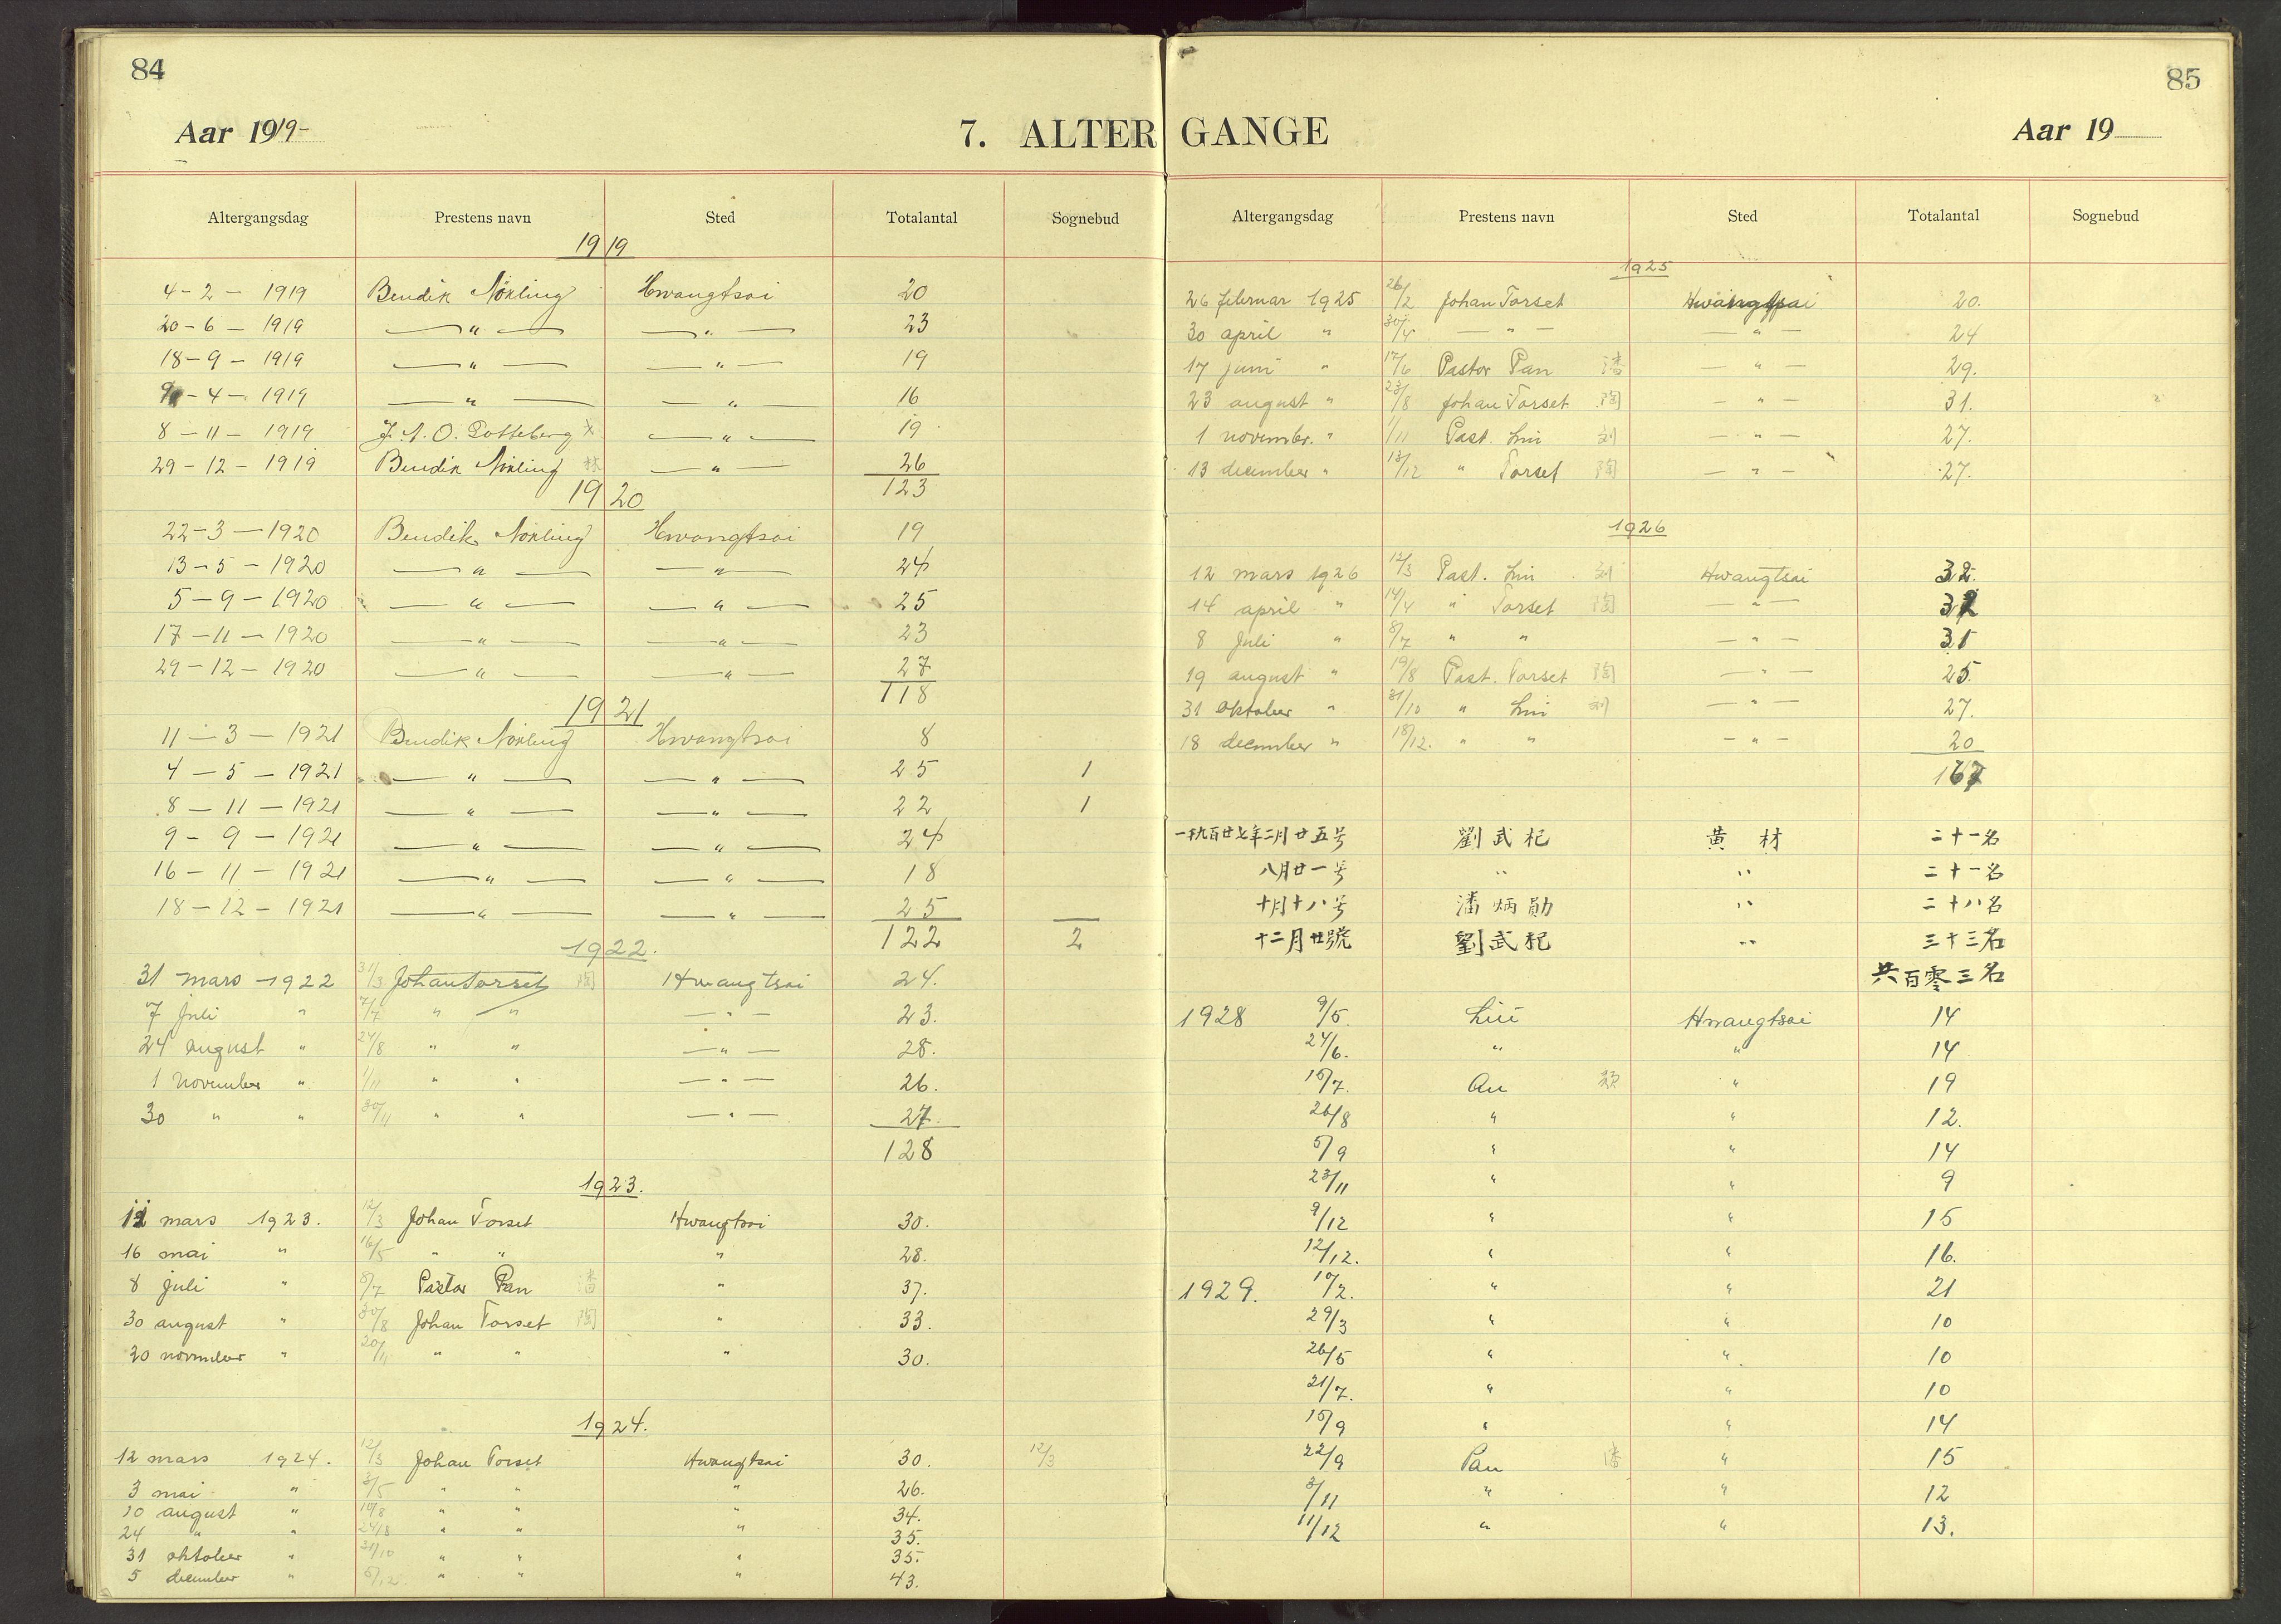 84
Aar 1919-
7. ALTER
Altergangsdag Prestens navn Sted Totalantal Sognebud
1919
4 - 2 - 1919 Bendik Nökling Hwangtsai 20
20 - 6 - 1919 — " — — " — 23
18 - 9 - 1919 — " — — " — 19
9 - 4 - 1919 — " — — " — 16
8 - 11 - 1919 J. A. O. Gotteberg — " — 19
29 - 12 - 1919 Bendik Nökling 林 — " — 26
123
1920
22 - 3 - 1920 Bendik Nökling Hwangtsai 19
13 - 5 - 1920 — " — — " — 24
5 - 9 - 1920 — " — — " — 25
17 - 11 - 1920 — " — — " — 23
29 - 12 - 1920 — " — — " — 27
118
1921
11 - 3 - 1921 Bendik Nökling Hwangtsai 8
4 - 5 - 1921 — " — — " — 25 1
8 - 11 - 1921 — " — — " — 22 1
9 - 9 - 1921 — " — — " — 24
16 - 11 - 1921 — " — — " — 18
18 - 12 - 1921 — " — — " — 25
122 2
1922.
31 mars - 1922 31/3 Johan Torset 陶 Hwangtsai 24.
7 Juli " 7/7 " " — " — 23.
24 august " 24/8 " " — " — 28.
1 November " 1/11 " " — " — 26.
30 " " 30/11 " " — " — 27.
128
1923.
12 mars 1923. 12/3 Johan Torset Hwangtsai 30.
16 mai " 16/5 " " " 28.
8 juli " 8/7 Pastor Pan 潘 " 37.
30 august " 30/8 Johan Torset 陶 " 33.
20 november " 20/11 " " " 30.
1924.
12 mars 1924. 12/3 Johan Torset Hwangtsai 30. 12/3
3 mai " 3/5 " " " 26.
10 august " 10/8 " " " 34.
24 " " 24/8 " " " 35.
31 oktober " 31/10 " " " 35.
5 december " 5/12. " " " 43.
85
GANGE
Aar 19
Altergangsdag Prestens navn Sted Totalantal Sognebud
1925
26 februar 1925 26/2 Johan Torset Hwangtsai 20.
30 april " 30/4 — " — — " — 24
17 juni " 17/6 Pastor Pan 潘 — " — 29.
23 august " 23/8 Johan Torset 陶 — " — 31.
1 novembr. " 1/11 Past. Liu 劉 — " — 27.
13 december " 13/12 " Torset 陶 — " — 27.
1926
12 mars 1926 12/3 Past. Liu 劉 Hwangtsai 32.
14 april " 14/4 " Torset 陶 — " — 32
8 Juli " 8/7 " " — " — 31
19 august " 19/8 Past. Torset 陶 — " — 25.
31 oktober " 31/10 " Liu 劉 — " — 27.
18 december " 18/12. " " — " — 20
167
一千九百廿七年二月廿五号 劉武杞 黄材 二十一名
八月廿一号 " " 二十一名
十月十八号 潘炳勛 " 二十八名
十二月廿號 劉武杞 " 三十三名
共百零三名
1928 9/5. Liu Hwangtsai 14
24/6. " " 14
15/7. Au 歐 " 19
26/8 " " 12.
5/9 " " 14
23/11 " " 9
9/12 " " 15
12/12. " " 16.
1929. 10/2. " " 21
29/3 " " 10
26/5 " " 10
21/7. " " 10
15/9 " " 14
22/9 Pan 潘 " 15
3/11 " " 12
11/12 " " 13.